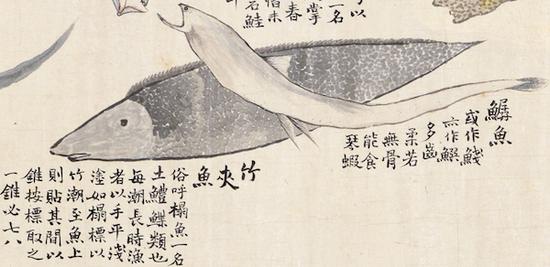 以
一名
掌
春
未
名鮭
魚
或作
亦作
多齒
柔若
無骨
能食
琴蝦
竹夾魚
俗呼榻魚一名
土鱧鰈類也
每潮長時漁
者以手平淺
塗如榻標以
竹潮至魚上
則貼其間以
錐按標取之
一錐必七八